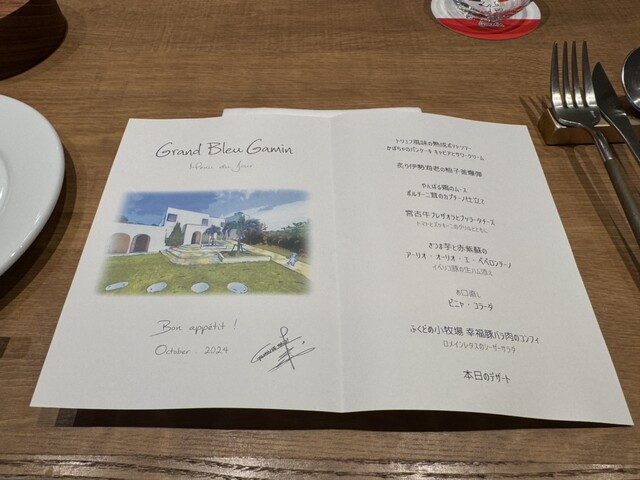 Grand Bleu Gamin
Menu du Jour
Bon appétit !
October . 2024
トリュフ風味の熟成ポテトフライ
かぼちゃのパンケーキ キャビアとサワークリーム
炙り伊勢海老の柚子釜
やんばる鶏のムース
ポルチーニ茸のカプチーノ仕立て
宮古牛ブレザオラとブッラータチーズ
トマトとズッキーニのグリルとともに
さつま芋と赤紫蘇の
アーリオ・オーリオ・エ・ペペロンチーノ
イベリコ豚の生ハム添え
お口直し
ピニャ・コラーダ
ふくどめ小牧場 幸福豚バラ肉のコンフィ
ロメインレタスのシーザーサラダ
本日のデザート